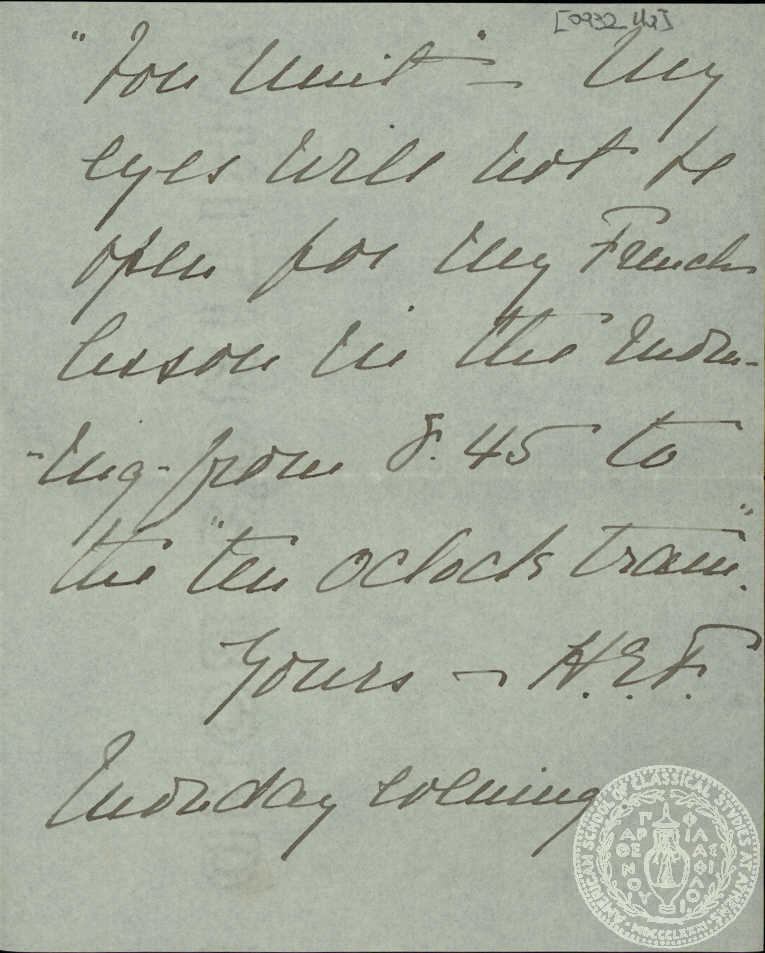 "bon nuit" – My
eyes will not be
open for my French
lesson in the morn-
-ing- from 8.45 to
the "ten oclock train".
Yours – H.E.F.
Monday evening
AMERICAN SCHOOL OF CLASSICAL STUDIES AT ATHENS
ΠΑΡΘΕΝΟΥ ΦΙΛΑΣ ΦΙΛΟΙ
MDCCCLXXXI